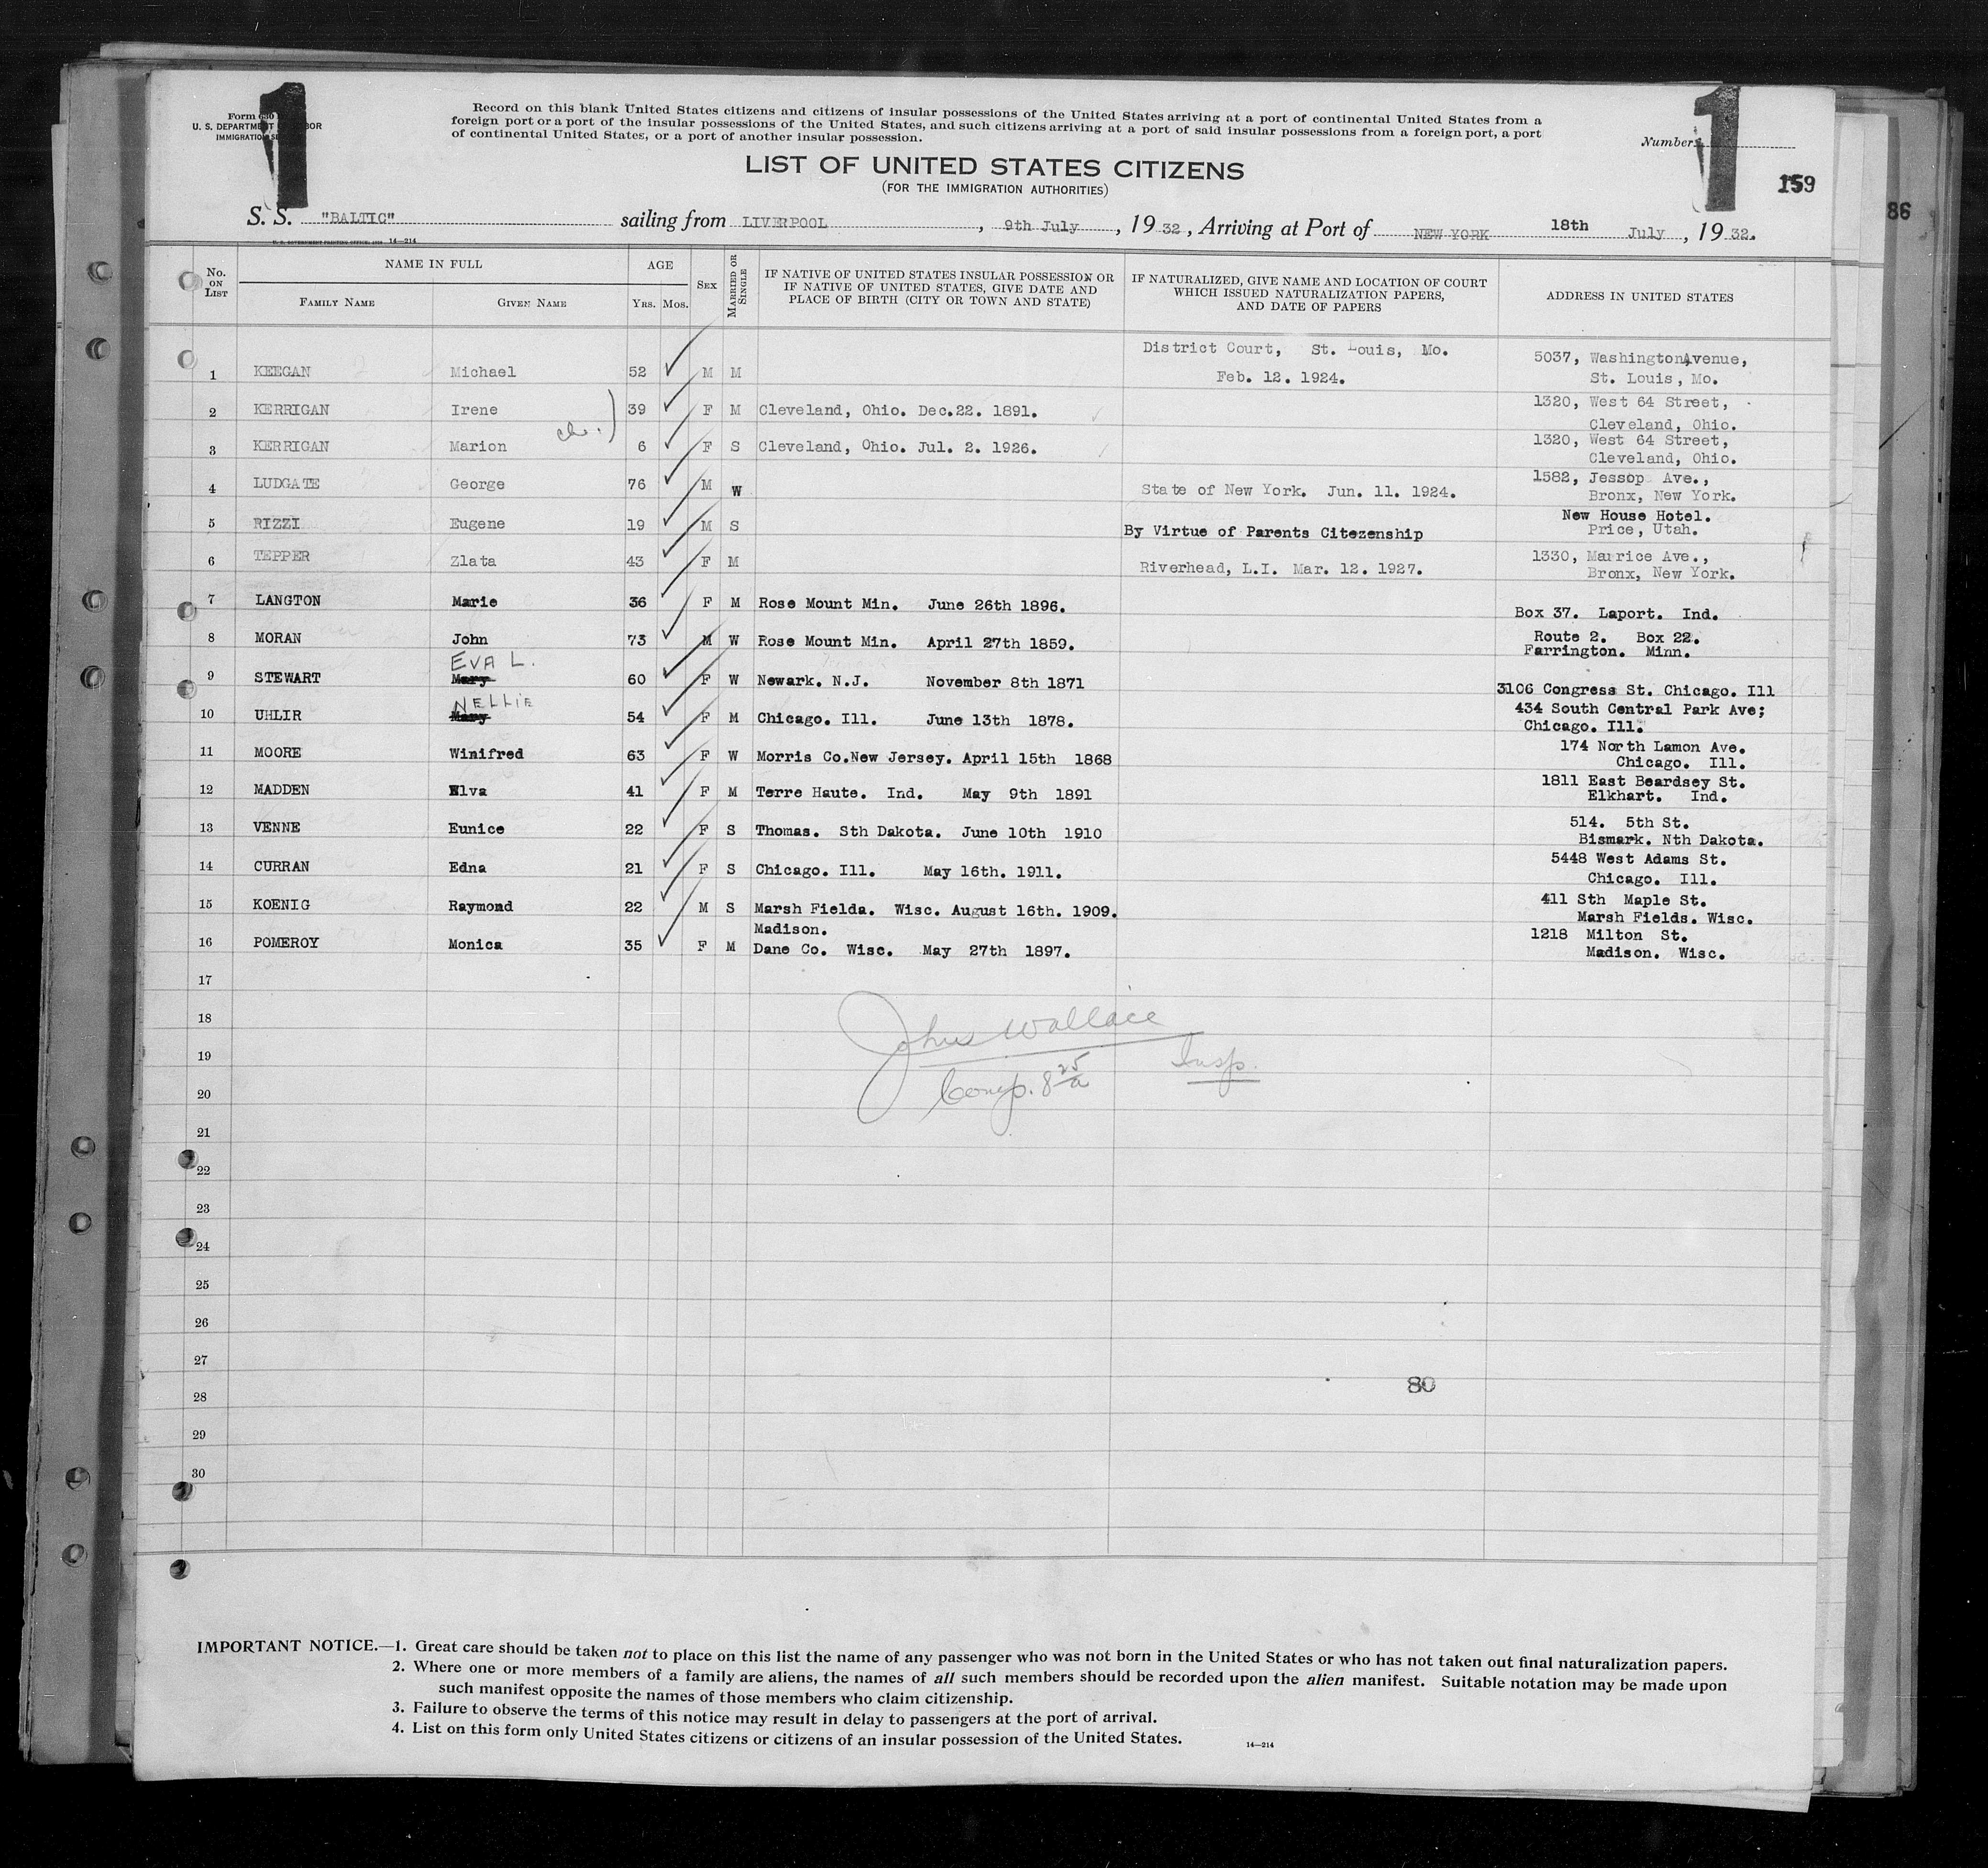 Form 630
U. S. DEPARTMENT OF LABOR
IMMIGRATION SERVICE
1
Record on this blank United States citizens and citizens of insular possessions of the United States arriving at a port of continental United States from a
foreign port or a port of the insular possessions of the United States, and such citizens arriving at a port of said insular possessions from a foreign port, a port
of continental United States, or a port of another insular possession.
Number
1
159
86
LIST OF UNITED STATES CITIZENS
(FOR THE IMMIGRATION AUTHORITIES)
S. S. "BALTIC" sailing from LIVERPOOL, 9th July, 1932, Arriving at Port of NEW YORK 18th July, 1932.
14—214
No. ON LIST NAME IN FULL FAMILY NAME GIVEN NAME AGE YRS. MOS. SEX MARRIED OR SINGLE IF NATIVE OF UNITED STATES INSULAR POSSESSION OR IF NATIVE OF UNITED STATES, GIVE DATE AND PLACE OF BIRTH (CITY OR TOWN AND STATE) IF NATURALIZED, GIVE NAME AND LOCATION OF COURT WHICH ISSUED NATURALIZATION PAPERS, AND DATE OF PAPERS ADDRESS IN UNITED STATES
1 KEEGAN Michael 52 M M District Court, St. Louis, Mo. Feb. 12. 1924. 5037, Washington Avenue, St. Louis, Mo.
2 KERRIGAN Irene 39 F M Cleveland, Ohio. Dec.22. 1891. 1320, West 64 Street, Cleveland, Ohio.
3 KERRIGAN Marion 6 F S Cleveland, Ohio. Jul. 2. 1926. 1320, West 64 Street, Cleveland, Ohio.
4 LUDGATE George 76 M W State of New York. Jun. 11. 1924. 1582, Jessop Ave., Bronx, New York.
5 RIZZI Eugene 19 M S By Virtue of Parents Citezenship New House Hotel. Price, Utah.
6 TEPPER Zlata 43 F M Riverhead, L.I. Mar. 12. 1927. 1330, Maurice Ave., Bronx, New York.
7 LANGTON Marie 36 F M Rose Mount Min. June 26th 1896. Box 37. Laport. Ind.
8 MORAN John 73 M W Rose Mount Min. April 27th 1859. Route 2. Box 22. Farrington. Minn.
EVA L.
9 STEWART Mary 60 F W Newark. N.J. November 8th 1871 3106 Congress St. Chicago. Ill
NELLIE
10 UHLIR Mary 54 F M Chicago. Ill. June 13th 1878. 434 South Central Park Ave; Chicago. Ill.
11 MOORE Winifred 63 F W Morris Co.New Jersey. April 15th 1868 174 North Lamon Ave. Chicago. Ill.
12 MADDEN Elva 41 F M Terre Haute. Ind. May 9th 1891 1811 East Beardsey St. Elkhart. Ind.
13 VENNE Eunice 22 F S Thomas. Sth Dakota. June 10th 1910 514. 5th St. Bismark. Nth Dakota.
14 CURRAN Edna 21 F S Chicago. Ill. May 16th. 1911. 5448 West Adams St. Chicago. Ill.
15 KOENIG Raymond 22 M S Marsh Fields. Wisc. August 16th. 1909. 411 Sth Maple St. Marsh Fields. Wisc.
16 POMEROY Monica 35 F M Madison. Dane Co. Wisc. May 27th 1897. 1218 Milton St. Madison. Wisc.
17
18
John Wallace
19
Insp.
Comp. 8 25/a
20
21
22
23
24
25
26
27
80
28
29
30
IMPORTANT NOTICE.—1. Great care should be taken not to place on this list the name of any passenger who was not born in the United States or who has not taken out final naturalization papers.
2. Where one or more members of a family are aliens, the names of all such members should be recorded upon the alien manifest. Suitable notation may be made upon
such manifest opposite the names of those members who claim citizenship.
3. Failure to observe the terms of this notice may result in delay to passengers at the port of arrival.
4. List on this form only United States citizens or citizens of an insular possession of the United States.
14—214